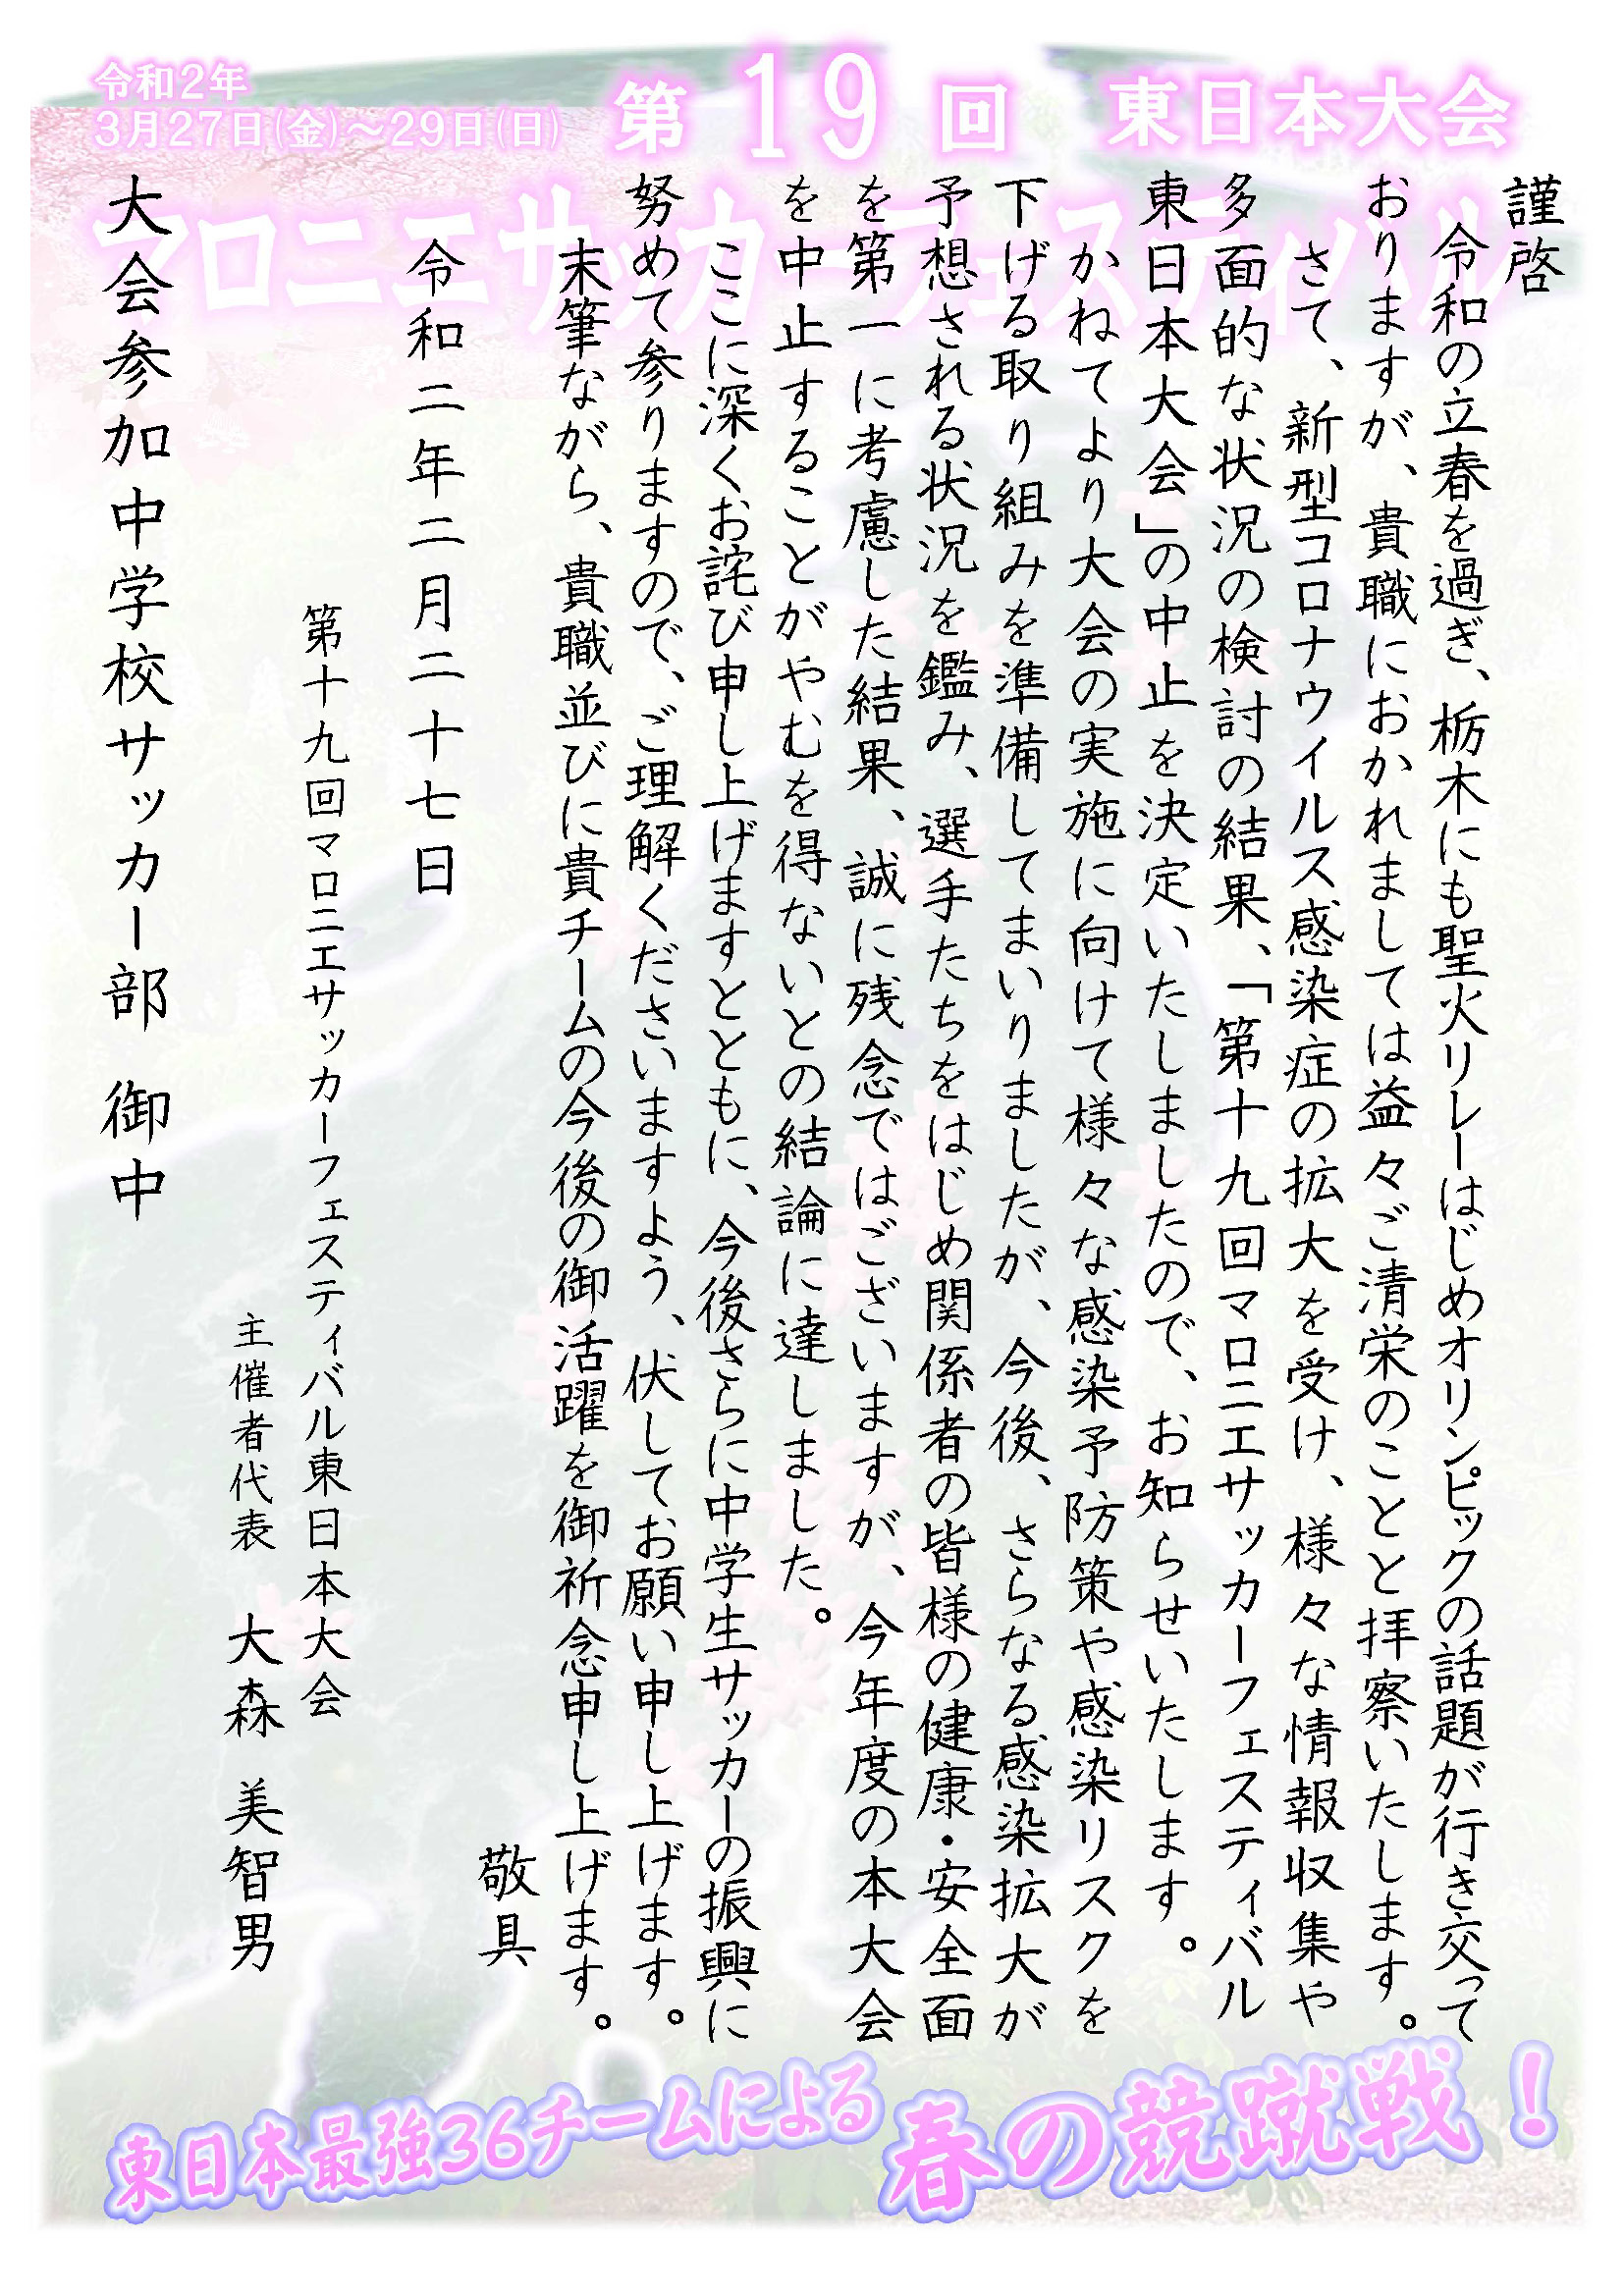 令和2年
3月27日(金)～29日(日)
第19回 東日本大会
マロニエサッカーフェスティバル
謹啓
令和の立春を過ぎ、栃木にも聖火リレーはじめオリンピックの話題が行き交って
おりますが、貴職におかれましては益々ご清栄のことと拝察いたします。
さて、新型コロナウイルス感染症の拡大を受け、様々な情報収集や
多面的な状況の検討の結果、「第十九回マロニエサッカーフェスティバル
東日本大会」の中止を決定いたしましたので、お知らせいたします。
かねてより大会の実施に向けて様々な感染予防策や感染リスクを
下げる取り組みを準備してまいりましたが、今後、さらなる感染拡大が
予想される状況を鑑み、選手たちをはじめ関係者の皆様の健康・安全面
を第一に考慮した結果、誠に残念ではございますが、今年度の本大会
を中止することがやむを得ないとの結論に達しました。
ここに深くお詫び申し上げますとともに、今後さらに中学生サッカーの振興に
努めて参りますので、ご理解くださいますよう、伏してお願い申し上げます。
末筆ながら、貴職並びに貴チームの今後の御活躍を御祈念申し上げます。
敬具
令和二年二月二十七日
第十九回マロニエサッカーフェスティバル東日本大会
主催者代表 大森 美智男
大会参加中学校サッカー部 御中
東日本最強36チームによる 春の競蹴戦！